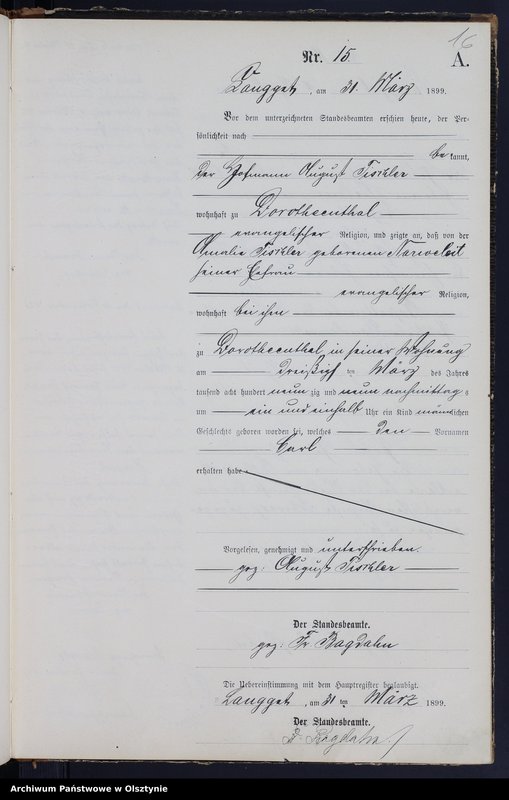 16
Nr. 15
A.
Langgut, am 31. März 1899.
Vor dem unterzeichneten Standesbeamten erschien heute, der Per-
sönlichkeit nach
be kannt,
der Hofmann August Tischler
wohnhaft zu Dorotheenthal
evangelischer Religion, und zeigte an, daß von der
Amalie Tischler geborenen
seiner Ehefrau
evangelischer Religion,
wohnhaft bei ihm
zu Dorotheenthal in seiner Wohnung
am dreißigsten März des Jahres
tausend acht hundert neunzig und neun nachmittags
um ein und einhalb Uhr ein Kind männlichen
Geschlechts geboren worden sei, welches den Vornamen
Carl
erhalten habe.
Vorgelesen, genehmigt und unterschrieben.
gez: August Tischler
Der Standesbeamte.
gez: Fr Bogdahn
Die Uebereinstimmung mit dem Hauptregister beglaubigt.
Langgut, am 31 ten März 1899.
Der Standesbeamte.
Fr Bogdahn
Archiwum Państwowe w Olsztynie